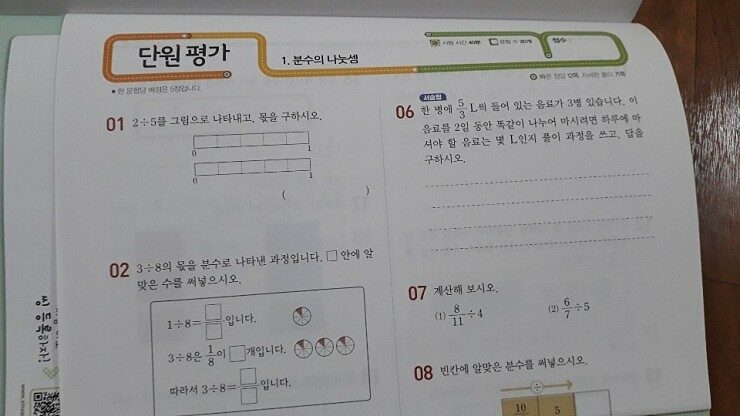 단원 평가
1. 분수의 나눗셈
시험 시간 40분
문항 수 20개
점수 :
• 한 문항당 배점은 5점입니다.
빠른 정답 12쪽, 자세한 풀이 71쪽
01 2÷5를 그림으로 나타내고, 몫을 구하시오.
0 1
0 1
( )
02 3÷8의 몫을 분수로 나타낸 과정입니다. □ 안에 알
맞은 수를 써넣으시오.
1÷8=□/□입니다.
3÷8은 1/8이 □개입니다.
따라서 3÷8=□/□입니다.
서술형
06 한 병에 5/3 L씩 들어 있는 음료가 3병 있습니다. 이
음료를 2일 동안 똑같이 나누어 마시려면 하루에 마
셔야 할 음료는 몇 L인지 풀이 과정을 쓰고, 답을
구하시오.
07 계산해 보시오.
(1) 8/11÷4 (2) 6/7÷5
08 빈칸에 알맞은 분수를 써넣으시오.
÷
10 5